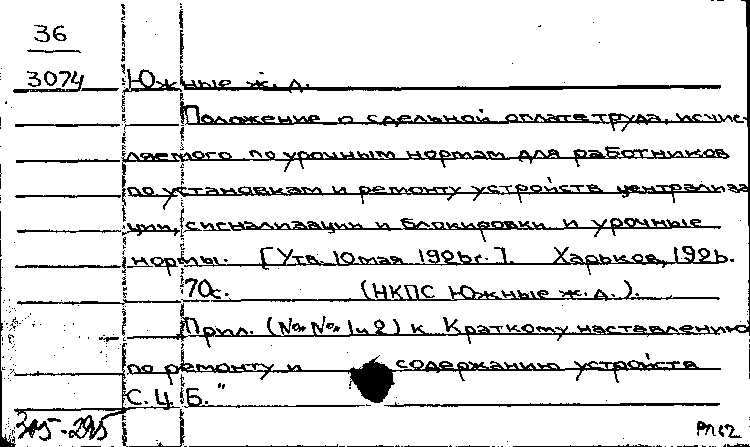 36
3074 Южные ж. д.
Положение о сдельной оплате труда, исчис-
ляемого по урочным нормам для работников
по установкам и ремонту устройств централиза
ции, сигнализации и блокировки и урочные
нормы. [Утв. 10 мая 1926г.]. Харьков, 1926.
70с. (НКПС Южные ж. д.).
Прил. (№№ 1 и 2) к Краткому наставлению
по ремонту и содержанию устройств
С. Ц. Б."